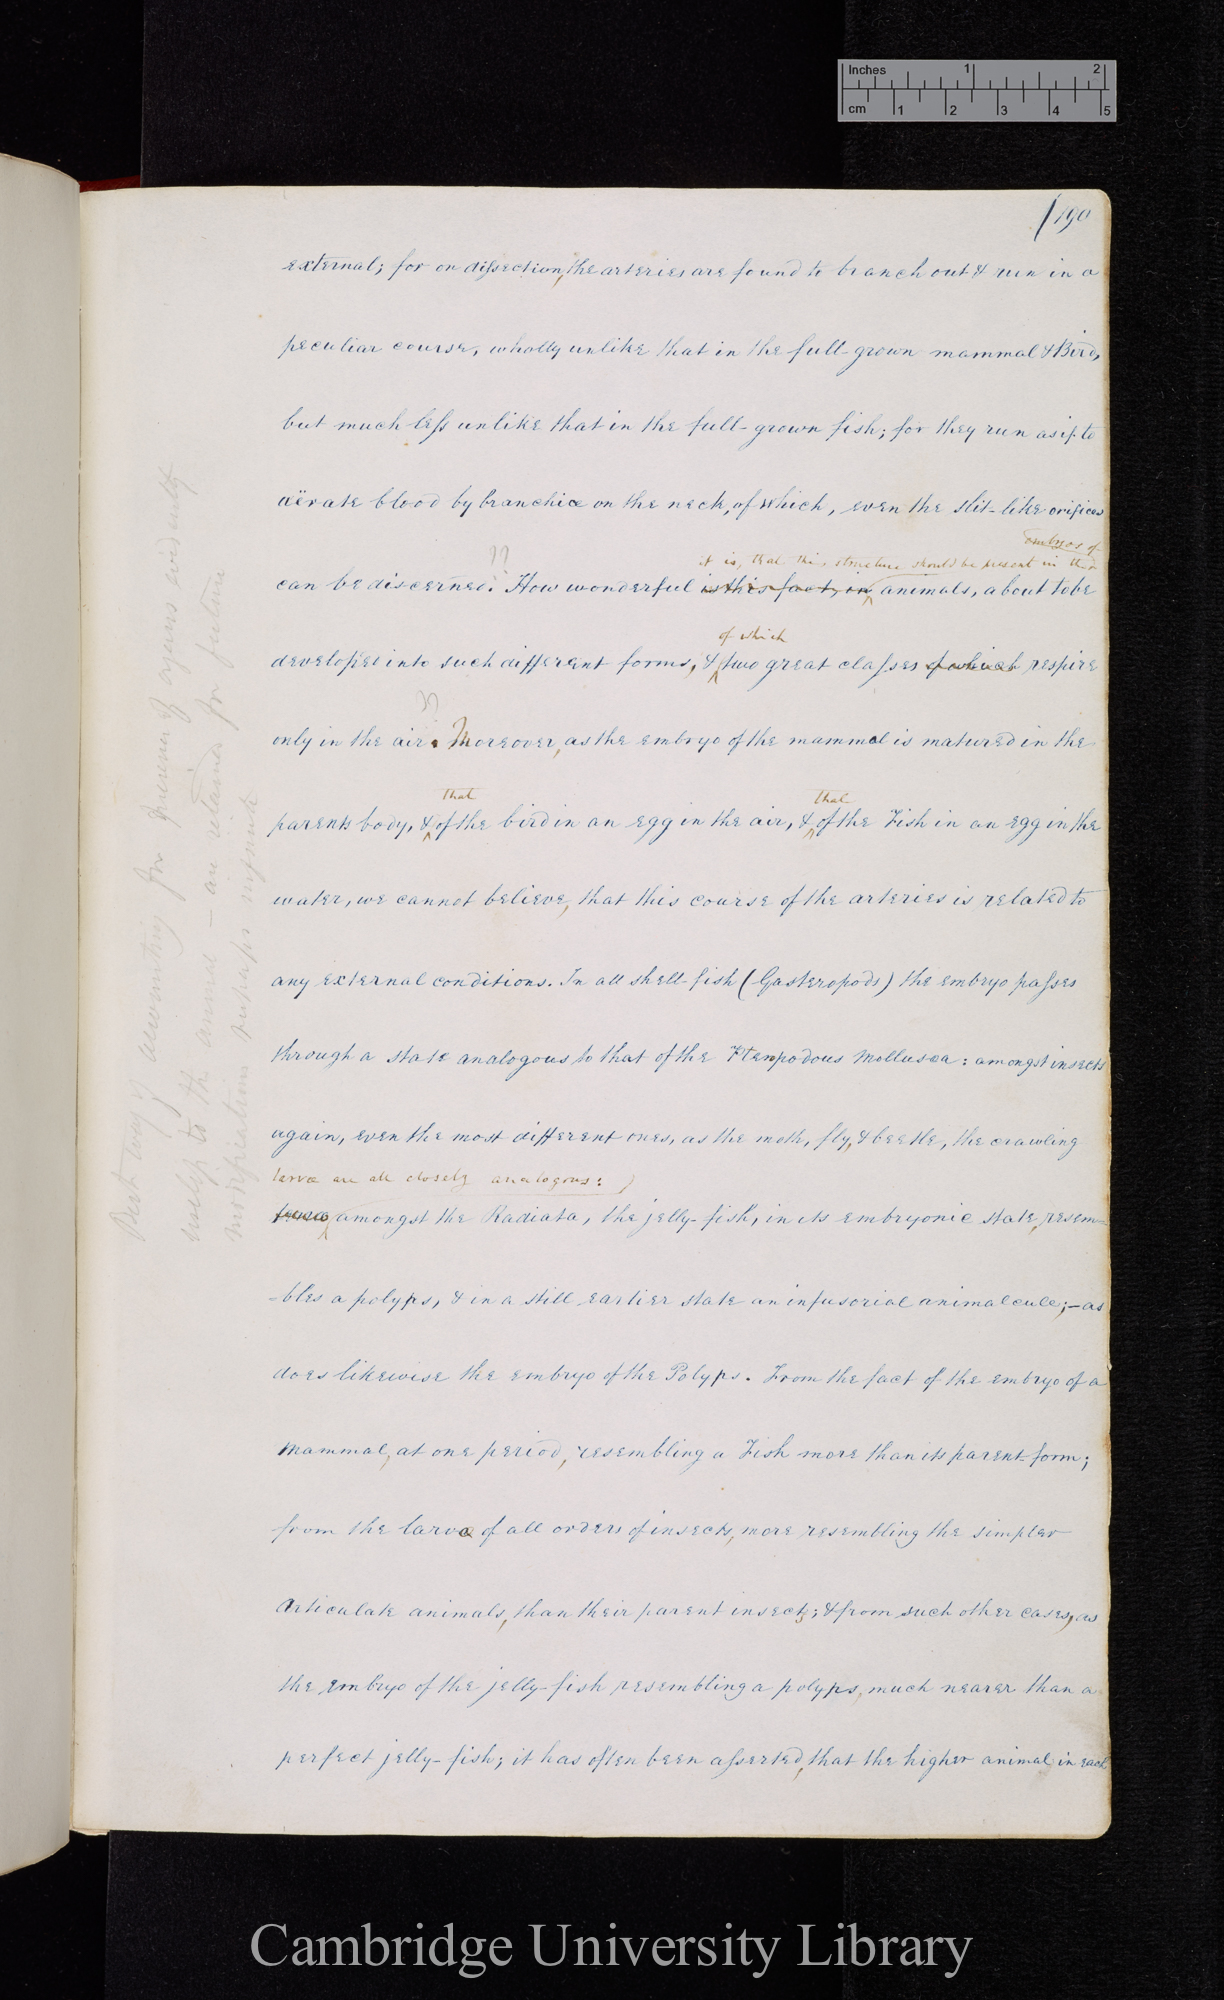 Inches 1 2
cm 1 2 3 4 5
190
external; for on dissection, the arteries are found to branch out & run in a
peculiar course, wholly unlike that in the full-grown mammal & Bird,
but much less unlike that in the full-grown fish; for they run as if to
aërate blood by branchiæ on the neck, of which, even the slit-like orifices
embryos of
?? it is, that this structure should be present in the
can be discerned. How wonderful is this fact, in animals, about to be
of which
developed into such different forms, & two great classes of which respire
only in the air. Moreover, as the embryo of the mammal is matured in the
that that
parents body, & of the bird in an egg in the air, & of the Fish in an egg in the
water, we cannot believe, that this course of the arteries is related to
any external conditions. In all shell-fish (Gasteropods) the embryo passes
through a state analogous to that of the Pteropodous Mollusca: amongst insects
again, even the most different ones, as the moth, fly, & beetle, the crawling
larvæ are all closely analogous:
larvæ amongst the Radiata, the jelly-fish, in its embryonic state, resem-
-bles a polyps, & in a still earlier state an infusorial animalcule;—as
does likewise the embryo of the Polyps. From the fact of the embryo of a
mammal, at one period, resembling a Fish more than its parent-form;
from the larvæ of all orders of insects, more resembling the simpler
articulate animals, than their parent insects; & from such other cases, as
the embryo of the jelly-fish resembling a polyps, much nearer than a
perfect jelly-fish; it has often been asserted, that the higher animal in each
Best way of accounting for presence of organs evidently
to the animal – an for future
modification perhaps
Cambridge University Library